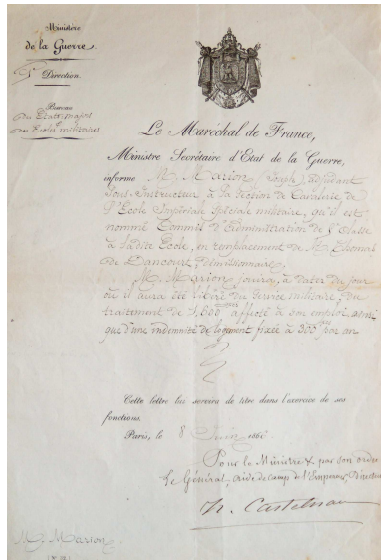 Ministère
de la Guerre.
Direction.
Bureau
des États-major
et des Écoles militaires
Le Maréchal de France,
Ministre Secrétaire d'État de la Guerre,
informe M. Marion (Joseph), adjudant
Sous-Instructeur à la Section de Cavalerie de
l'École Impériale Spéciale militaire, qu'il est
nommé Commis d'administration de 1re Classe
à ladite École, en remplacement de M. Thomas
de Dancourt, démissionnaire.
M. Marion jouira, à dater du jour
où il aura été libéré du service militaire, du
traitement de affecté à son emploi ainsi
que d'une indemnité de logement fixée à 300 par an
Cette lettre lui servira de titre dans l'exercice de ses
fonctions.
Paris, le 8 Juin
Pour le Ministre & par son ordre
Le Général, aide de camp de l'Empereur, Directeur
Castelnau
M. Marion